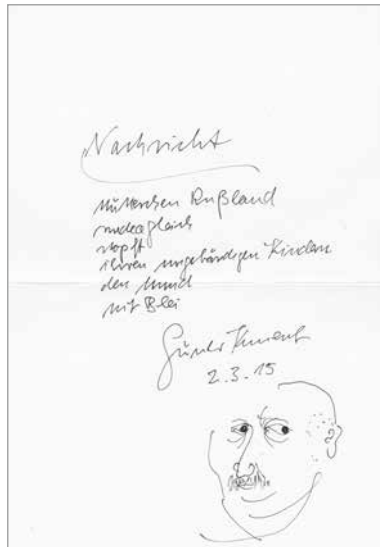 Nachricht
Mütterchen Rußland
medeagleich
stopft
ihren ungebärdigen Kindern
den Mund
mit Blei
Günter Kunert
2.3.15